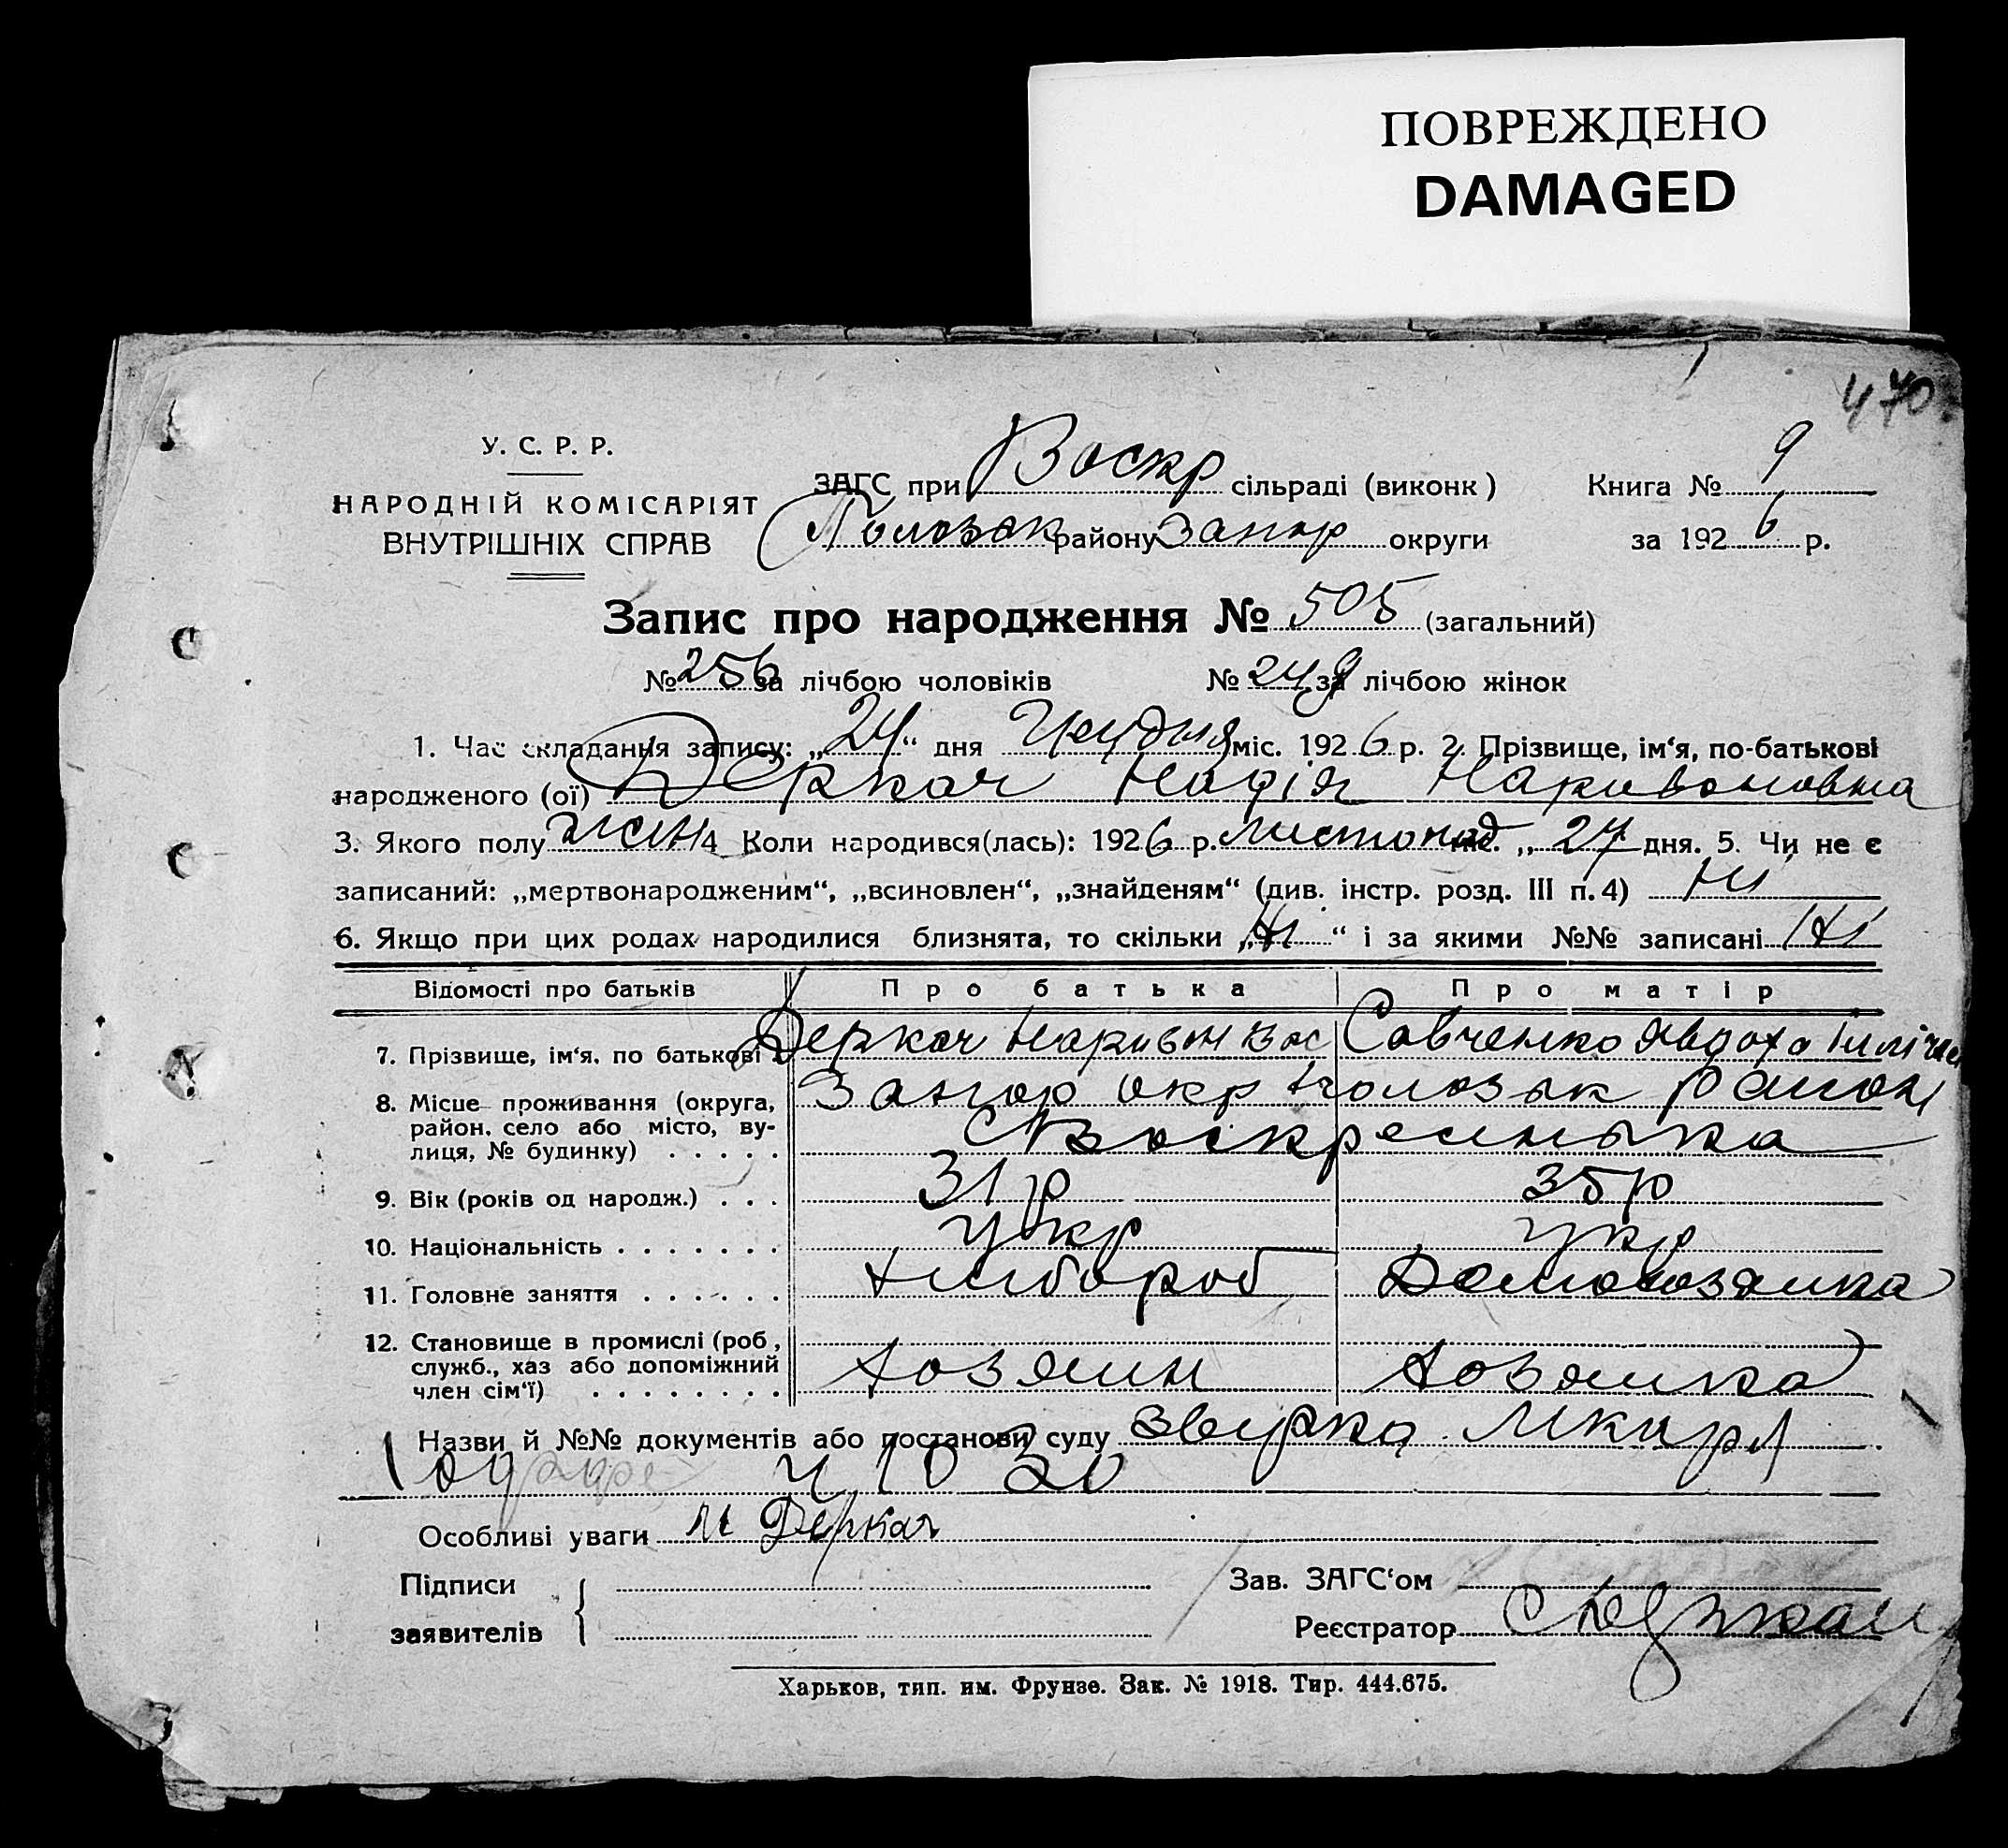 ПОВРЕЖДЕНО
DAMAGED
470
У. С. Р. Р.
НАРОДНІЙ КОМІСАРІЯТ
ВНУТРІШНІХ СПРАВ
ЗАГС при Воскр сільраді (виконк)
Книга № 9
району Запор округи
за 1926 р.
Запис про народження № 505 (загальний)
№ 256 за лічбою чоловіків № 249 за лічбою жінок
1. Час складання запису: „24“ дня Грудня міс. 1926 р. 2. Прізвище, ім‘я, по-батькові
народженого (ої) Деркач Надія Наривоновна
3. Якого полу жін 4 Коли народився(лась): 1926 р. листопад міс. „27 дня. 5. Чи не є
записаний: „мертвонародженим“, „всиновлен“, „знайденям“ (див. інстр. розд. III п. 4) Ні
6. Якщо при цих родах народилися близнята, то скільки „Ні“ і за якими №№ записані Ні
Відомості про батьків Про батька Про матір
7. Прізвище, ім‘я, по батькові Деркач Наривон Вас Савченко Явдоха
8. Місце проживання (округа, район, село або місто, вулиця, № будинку) Запор окр район
Воскресинька
9. Вік (років од народж.) . . . 31 р 35 р
10. Національність . . . . . . . укр укр
11. Головне заняття . . . . . . хлібороб Домохозяика
12. Становище в промислі (роб, служб., хаз або допоміжний член сім‘ї) . . . . . . . . хозяин хозяика
Назви й №№ документів або постанови суду
Особливі уваги Деркач
Підписи
заявителів
Зав. ЗАГС‘ом
Реєстратор
Харьков, тип. им. Фрунзе. Зак. № 1918. Тир. 444.675.